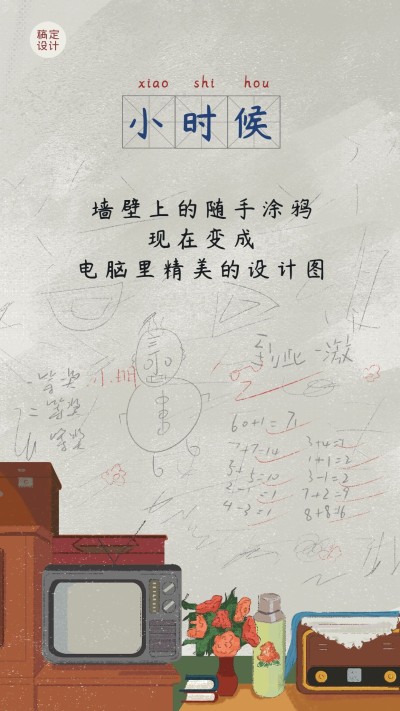 稿定
设计
xiao shi hou
小时候
墙壁上的随手涂鸦
现在变成
电脑里精美的设计图
到此一激
一等奖
小明
二等奖
等奖
60+1=71
7+7=14
3+4=7
1+1=2
5+5=10
3-1=2
2-1=1
7+2=9
4-3=1
8+8=16